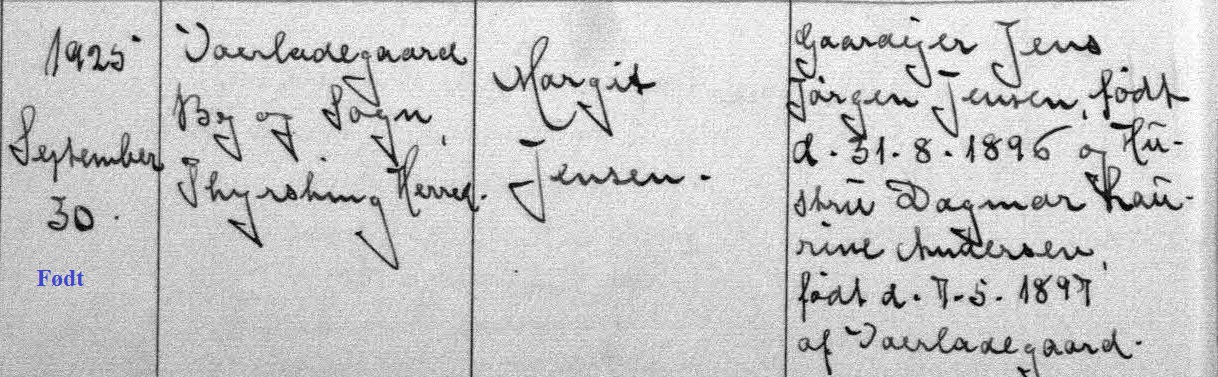 1925
September
30.
Født
Voerladegaard
By og Sogn,
Thyrsting Herred.
Margit
Jensen.
Gaardejer Jens
Jörgen Jensen, födt
d. 31. 8. 1896 og Hū-
strū Dagmar Laū-
rine Andersen,
födt d. 7. 5. 1897
af Voerladegaard.